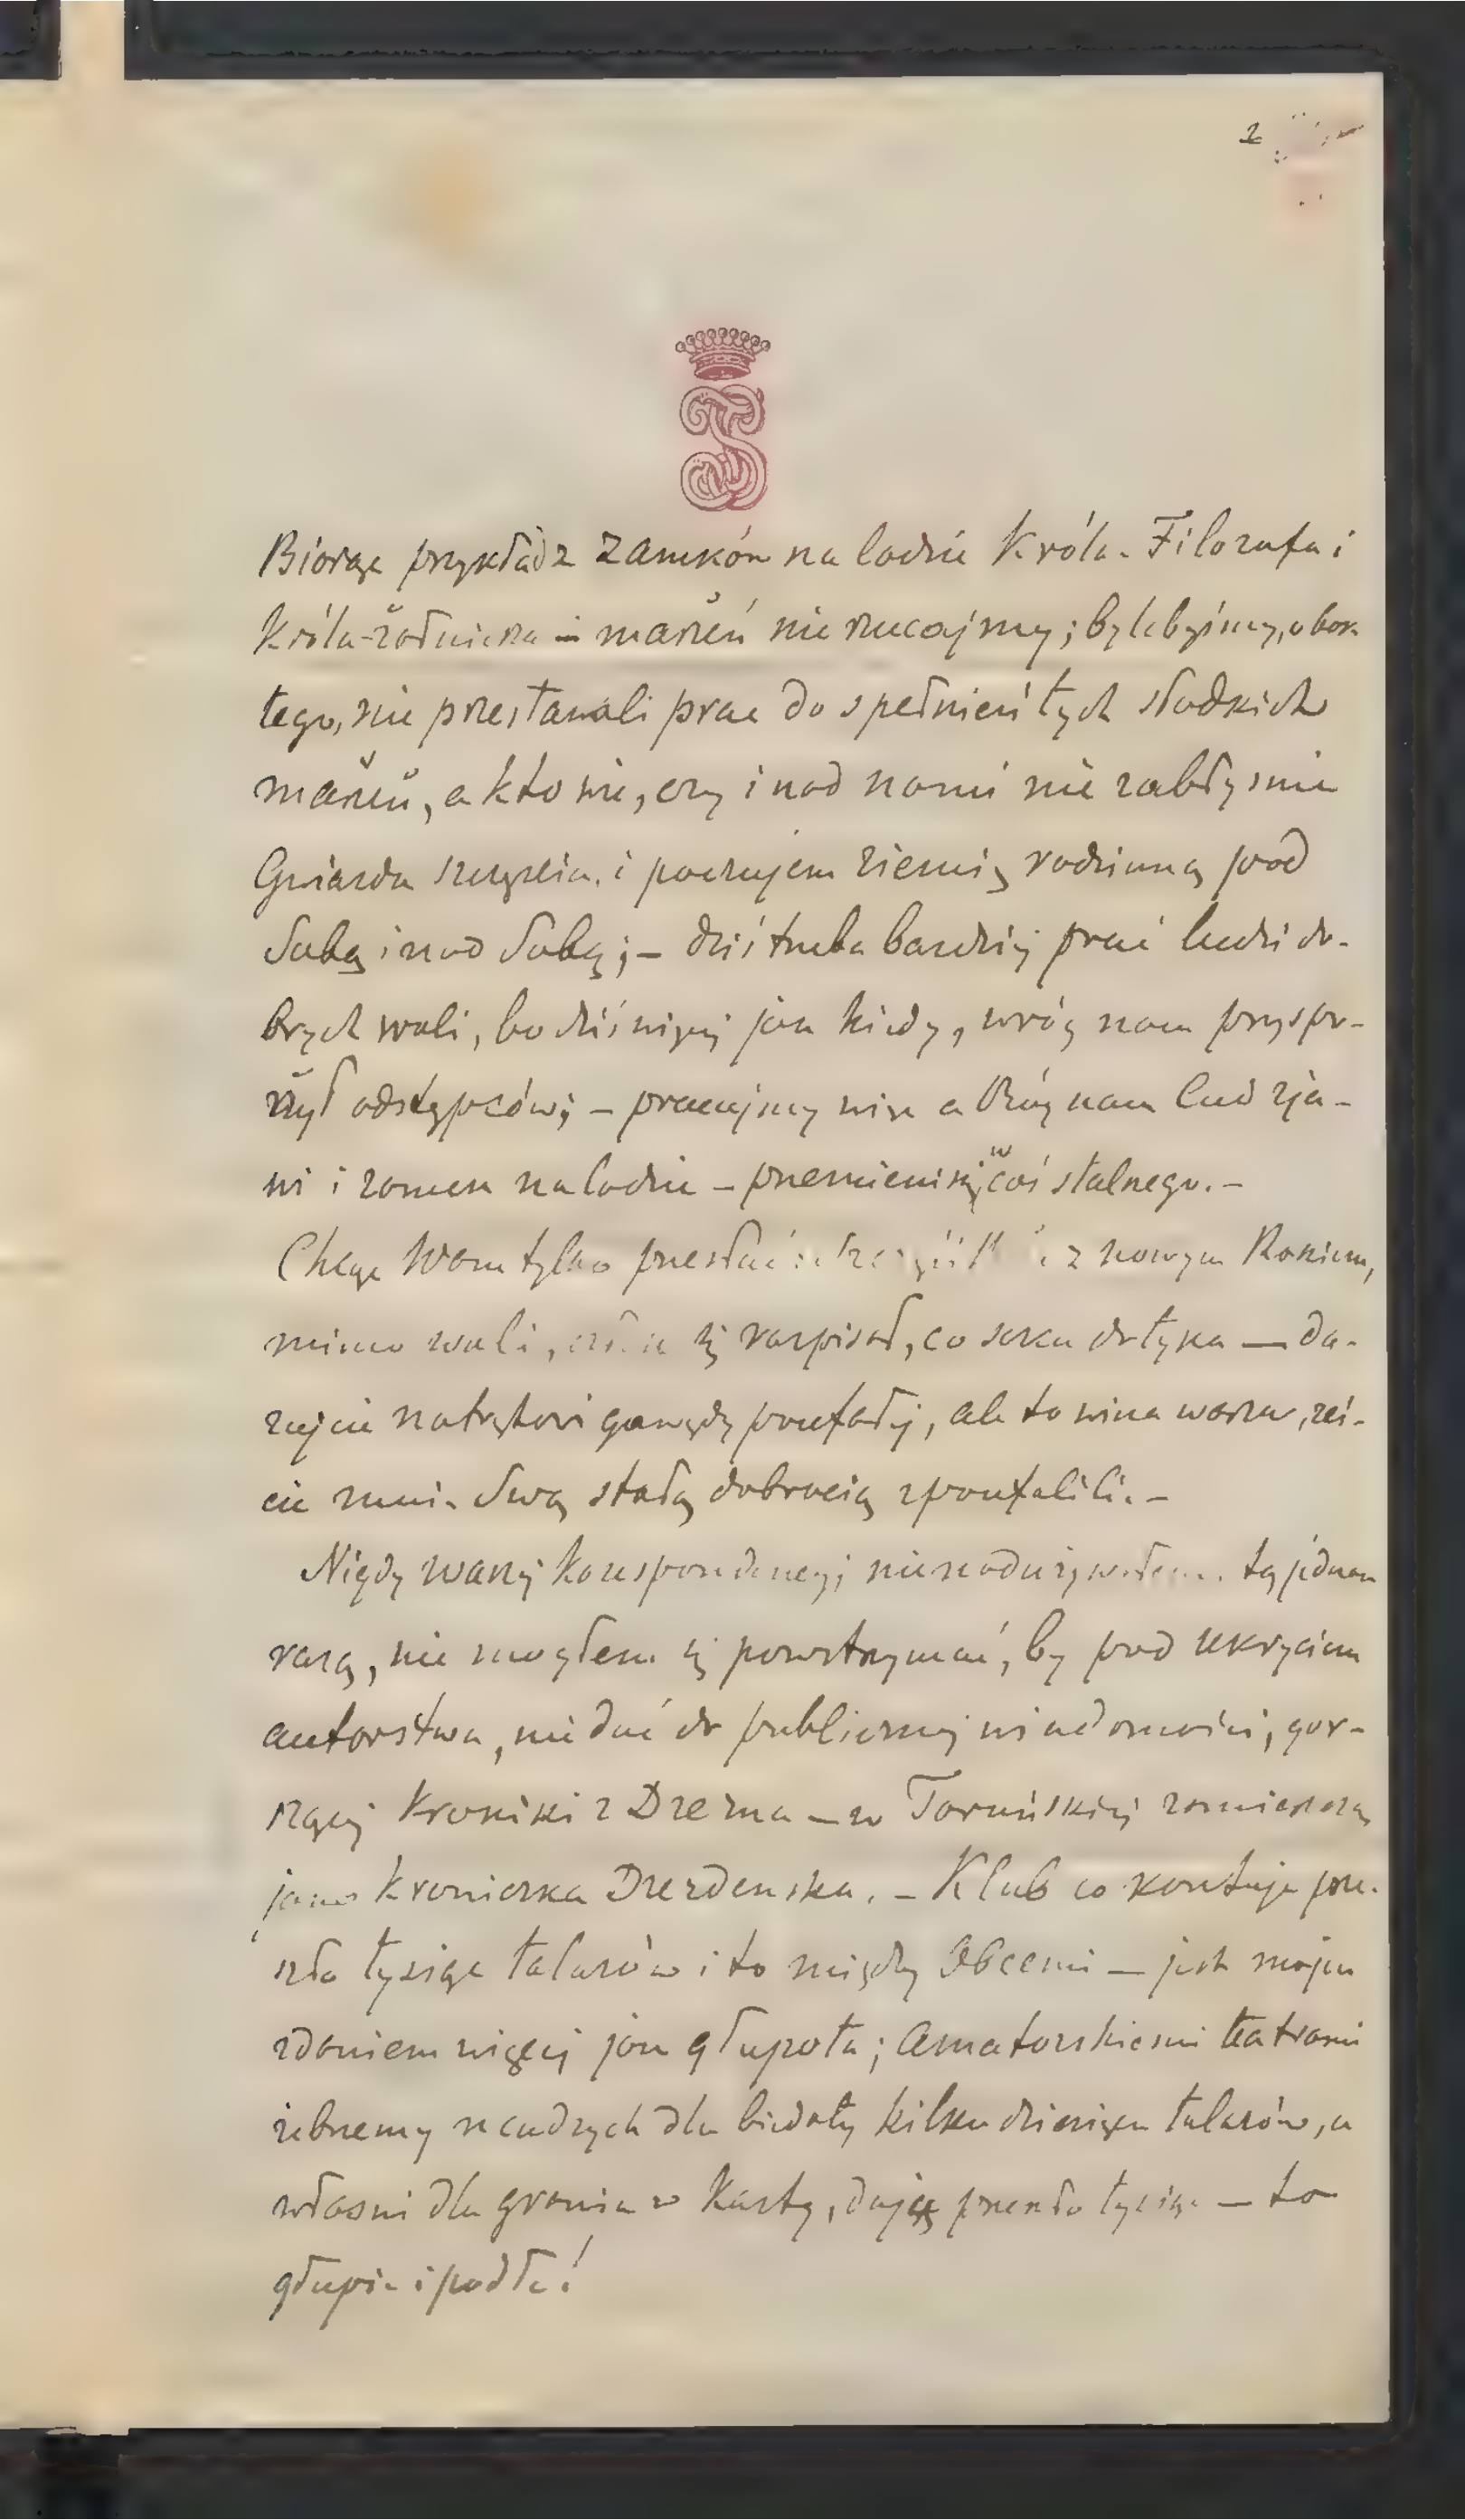 2
Biorąc przykład z zamków na lodzie Króla-Filozofa i
Króla-żołnierza – marzeń nie rzucajmy; bylebyśmy, obok
tego, nie przestawali prac do spełnień tych słodkich
marzeń, a kto wie, czy i nad nami nie zabłyśnie
Gwiazda szczęścia, i poczujem ziemię rodzinną pod
Sobą i nad Sobą; – dziś trzeba bardziej prac ludzi do-
brych woli, bo dziś więcej jak kiedy, wróg nam przyspo-
rzył odstępców; – pracujmy więc a Bóg nam Cud zja-
wi i zamek na lodzie – przemieni się w coś stałego. –
Chcąc Wam tylko przesłać z nowym Rokiem,
mimo woli, się rozpisał, co serca dotyka — da-
rujcie natrętowi gawędy poufałej, ale to wina wasza, żeś-
cie mnie Swą stałą dobrocią spoufalili. –
Nigdy waszej korespondencyi nienadużywałem tą jedną
razą, nie mogłem się powstrzymać, by pod ukryciem
autorstwa, nie dać do publicznej wiadomości, gor-
szącej kroniki z Drezna – w Toruńskiej zamieszczą
jako kroniczka Drezdeńska. – Klub co kosztuje prze-
szło tysiąc talarów i to między Obcemi — jest mojem
zdaniem więcej jak głupota; Amatorskiemi teatrami
żebrzemy u cudzych dla biedoty kilkudziesięciu talarów, a
właśni dla grania w Karty, dają przeszło tysiąc — to
głupie i podłe!